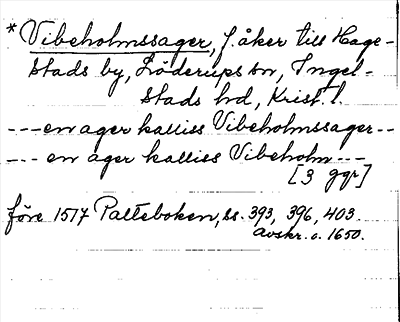 * Vibeholmssager, f. åker till Hage-
stads by, Löderups sn, Ingel-
stads hd, Krist. l.
--- en ager kalliss Vibeholmssager --
--- en ager kalliss Vibeholm ---
[3 ggr]
före 1517 Palteboken, ss. 393, 396, 403.
Avskr. c. 1650.